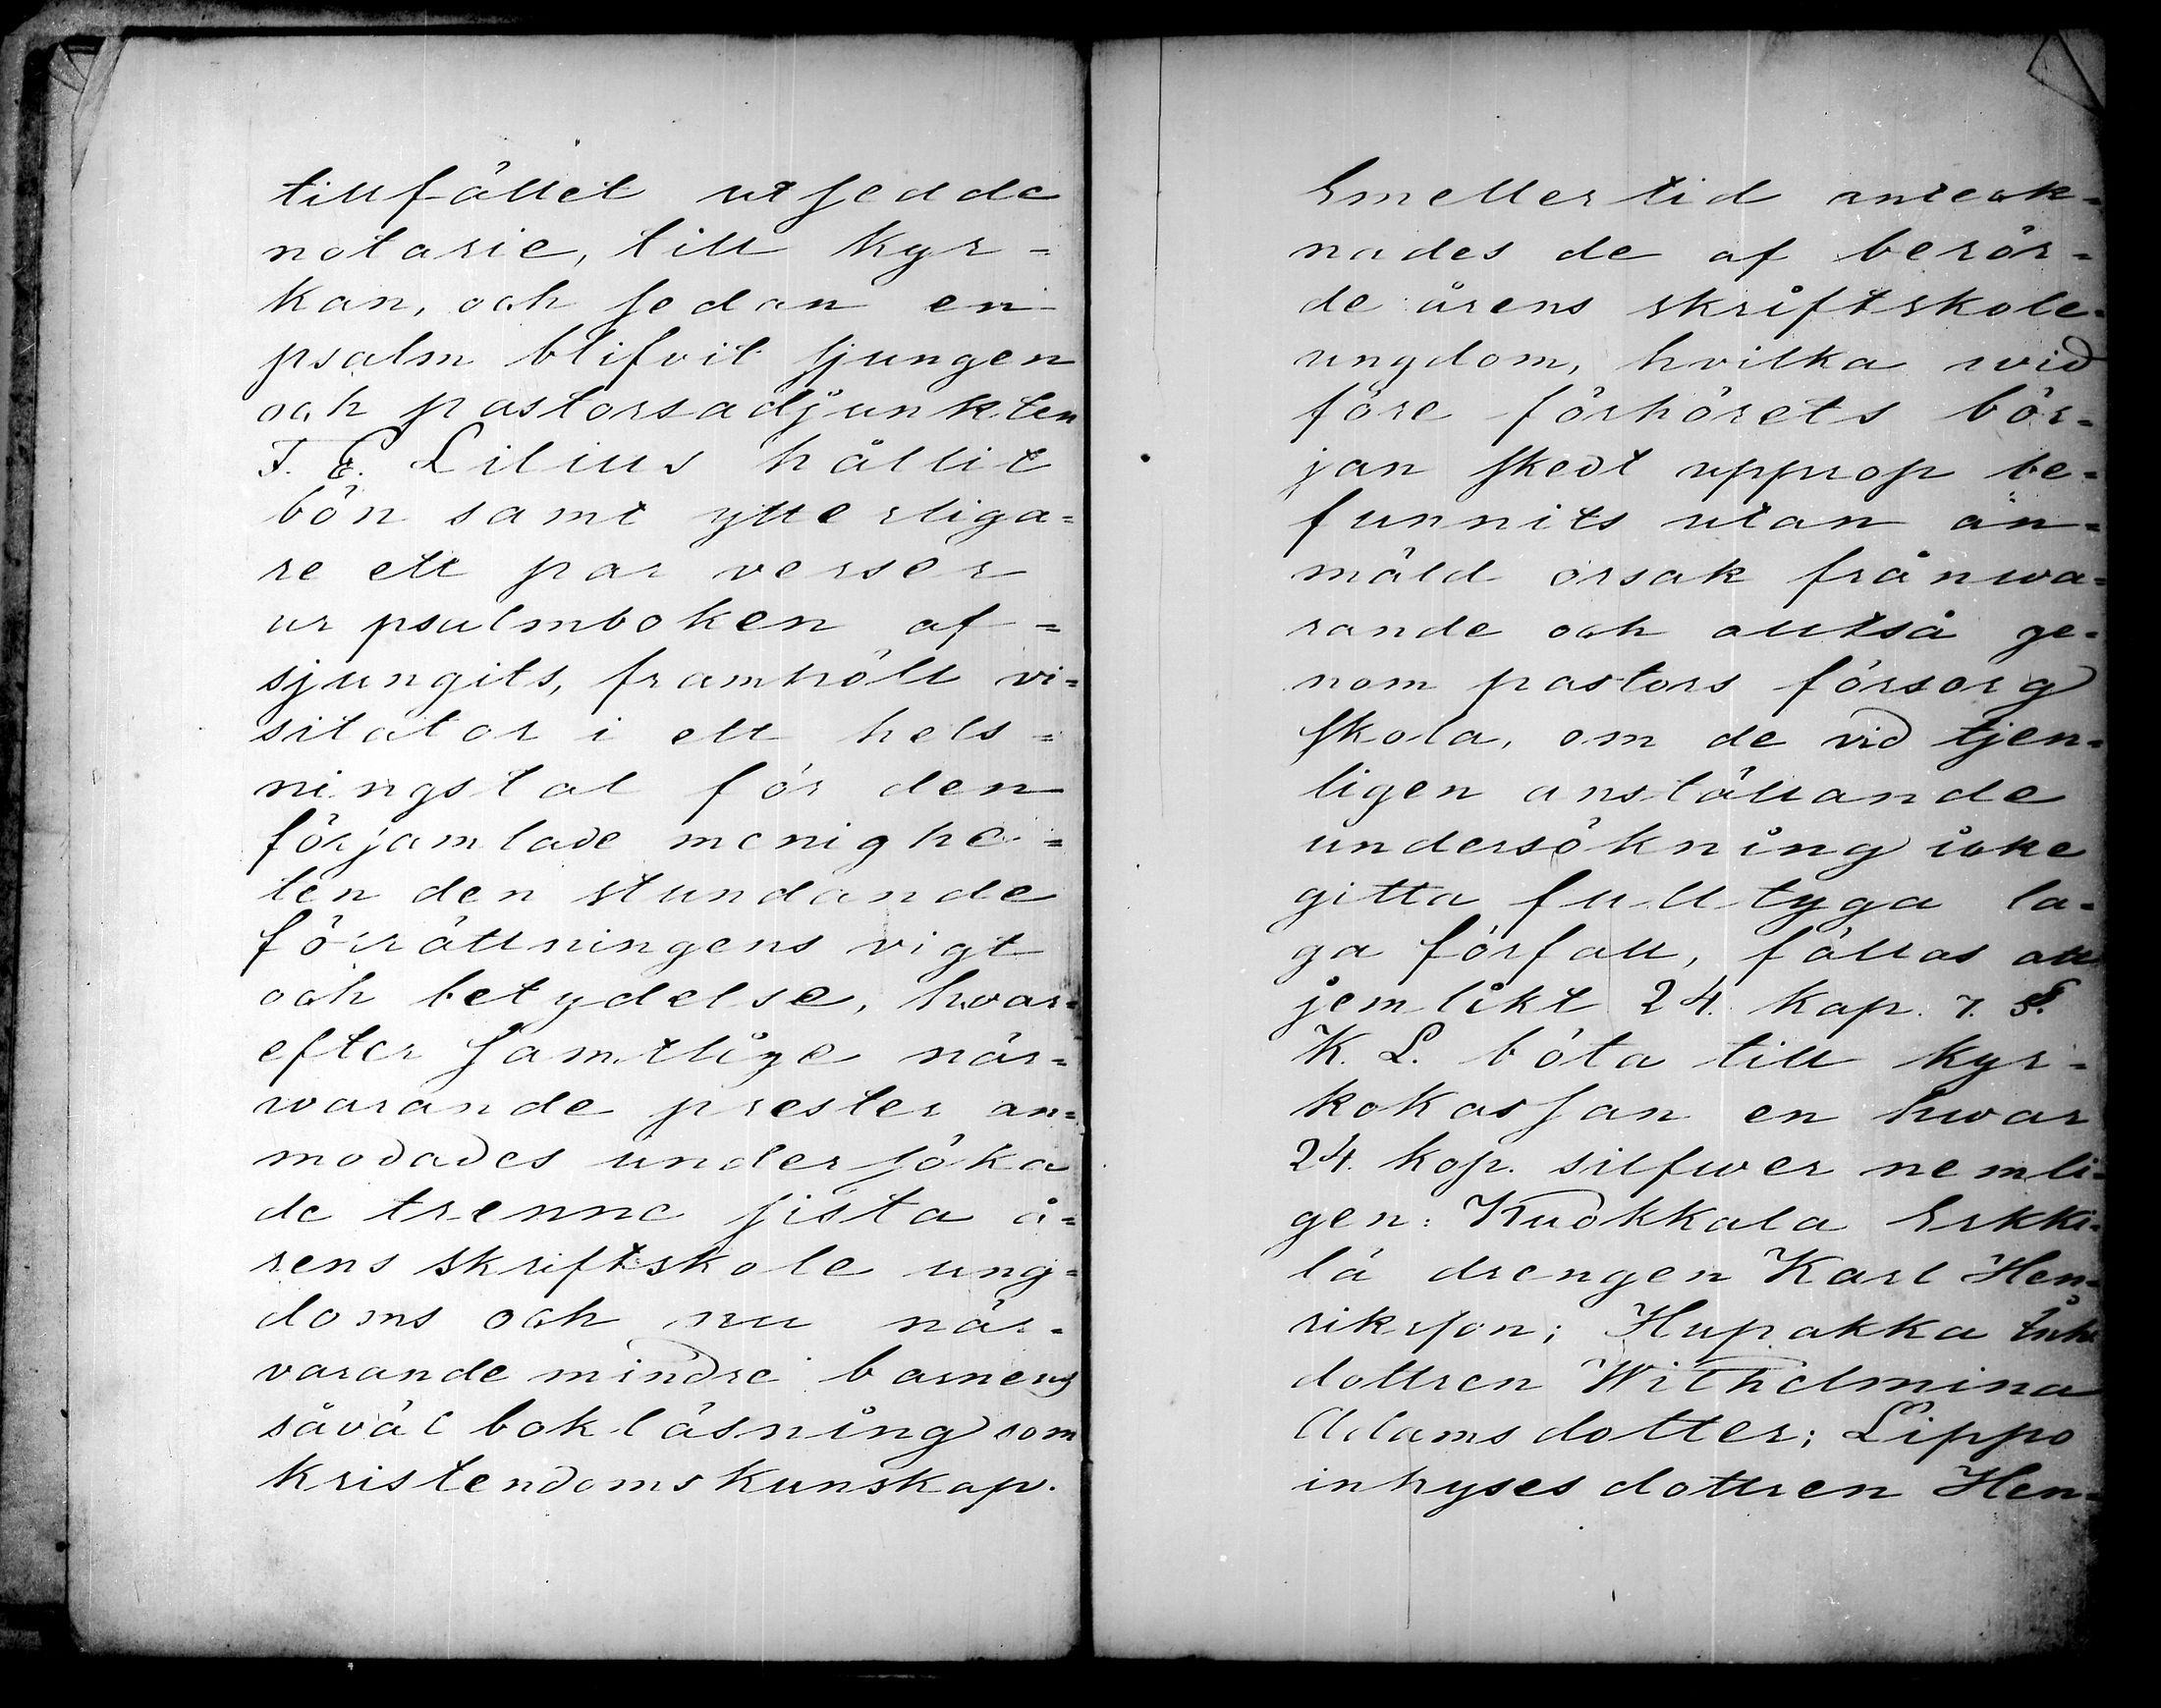 tillfället utsedda
notarie, till kyr=
kan, och sedan en
psalm blifvit sjungen
och pastorsadjunkten
F. E. Lilius hållit
bön samt ytterliga=
re ett par verser
ur psalmboken af=
sjungits, framhöll vi=
sitator i ett hels=
ningstal för den
församlade menighe=
ten den stundande
förrättningens vigt
och betydelse, hvar=
efter samtlige när=
warande prester an=
modades undersöka
de trenne sista å=
rens skriftskole ung=
doms och nu när=
varande mindre barnens
såväl bokläsning som
kristendomskunskap.
Emellertid anteck=
nades de af berör=
de årens skriftskole=
ungdom, hvilka wid
före förhörets bör=
jan skedt upprop be=
funnits utan an=
mäld orsak frånwa=
rande och alltså ge=
nom pastors försorg
skola, om de vid tjen=
ligen anställande
undersökning icke
gitta fulltyga la=
ga förfall, fällas att
jemlikt 24. kap. 7. §.
K. L. böta till kyr=
kokassan en hwar
24. kop. silfwer nemli=
gen: Kuokkala Erkki=
lä drengen Karl Hen=
riksson; Hupakka
dottren Wilhelmina
Adamsdotter; Lippo
inhysesdottren Hen=